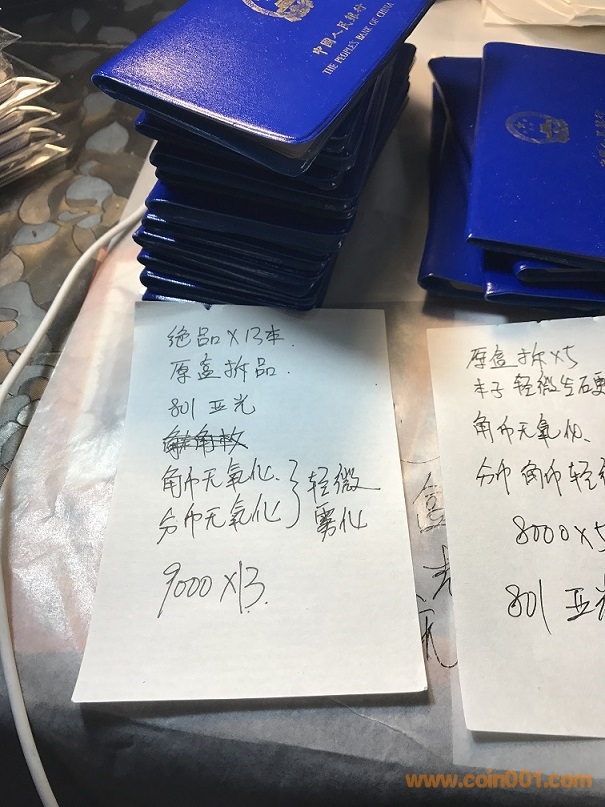 中国人民银行
THE PEOPLE'S BANK OF CHINA
绝品×13本.
原盒拆品.
801 亚光
角币无氧化.
分币无氧化 } 轻微
雾化
9000×13.
原盒拆×5
本子轻微
角币无氧化.
分币角币轻
8000×5
801 亚光
www.coin001.com